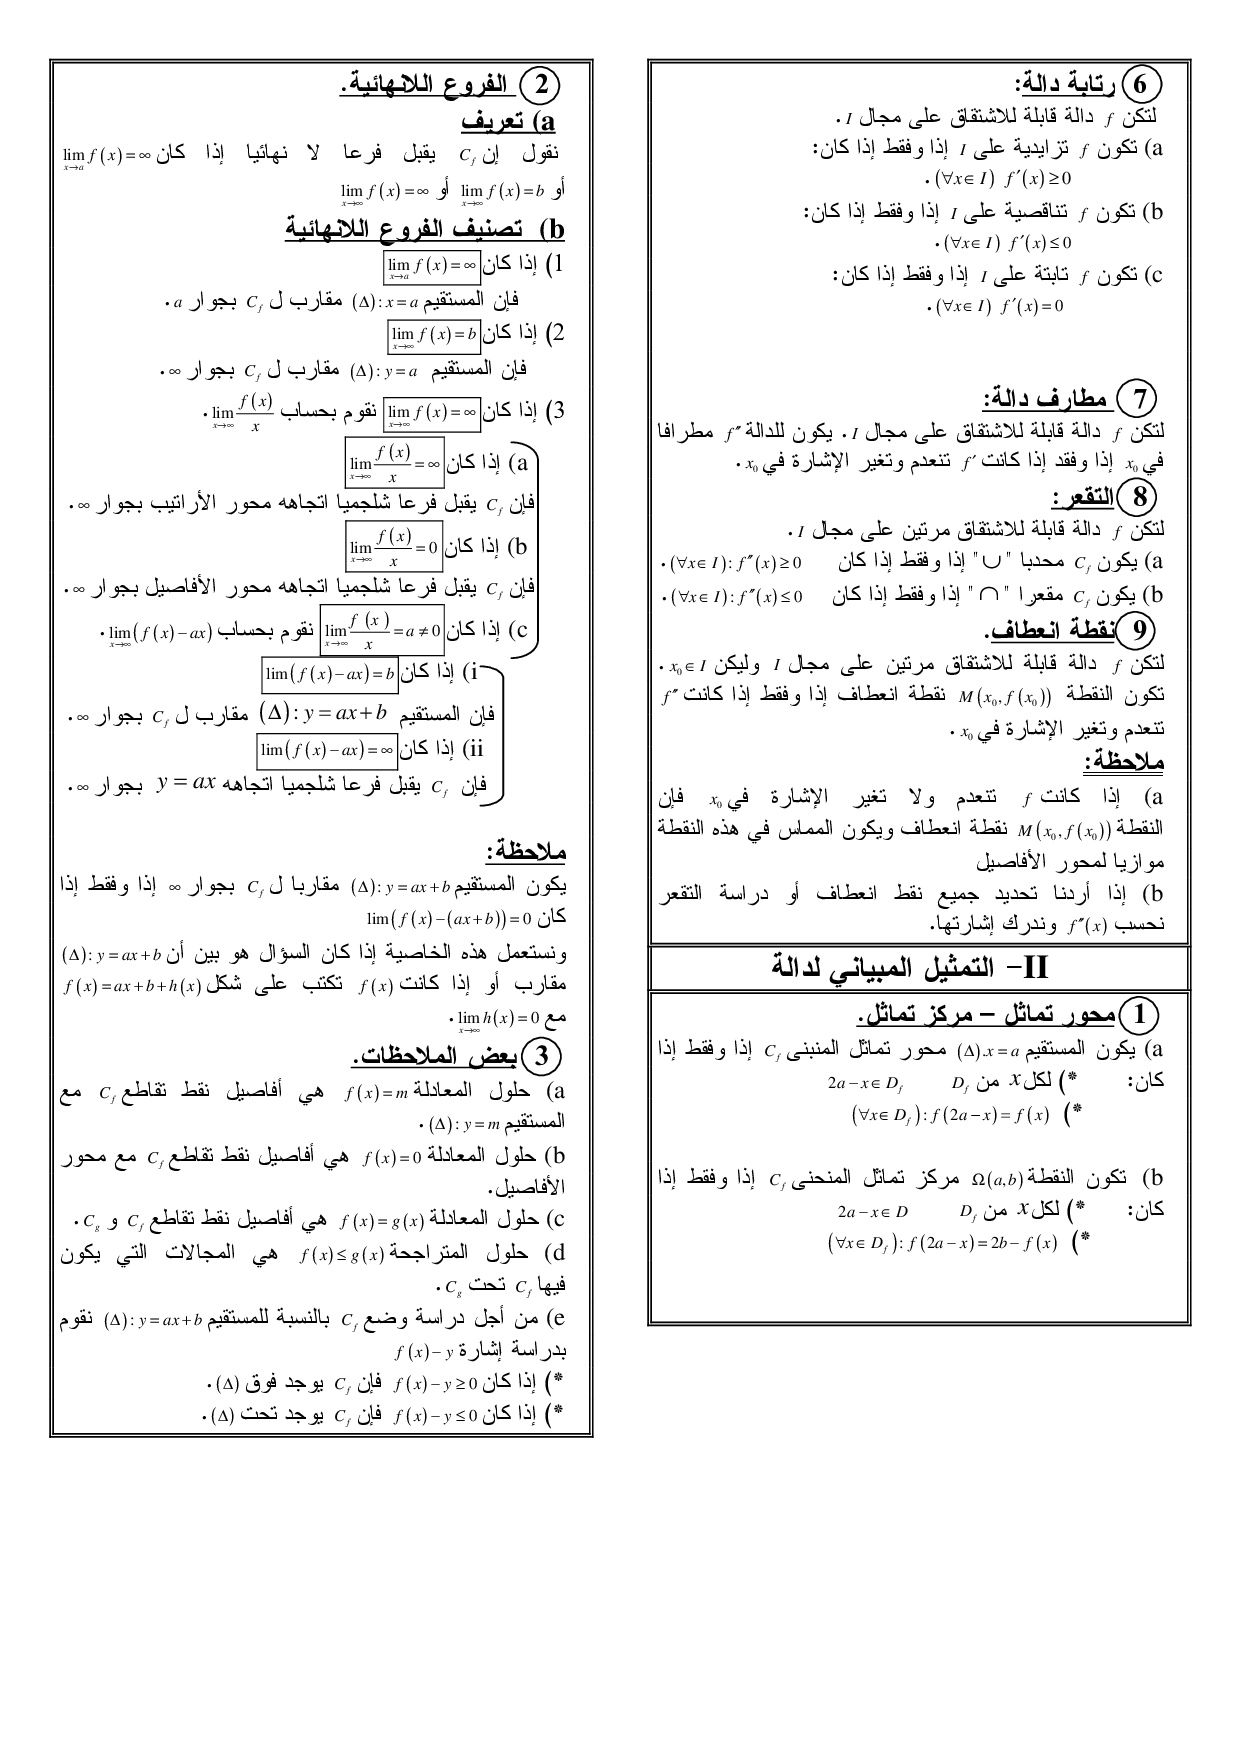 6 رتابة دالة:
لتكن f دالة قابلة للاشتقاق على مجال I .
a) تكون f تزايدية على I إذا وفقط إذا كان:
(∀x∈ I) f ′(x) ≥ 0 .
b) تكون f تناقصية على I إذا وفقط إذا كان:
(∀x∈ I) f ′(x) ≤ 0 .
c) تكون f تابتة على I إذا وفقط إذا كان:
(∀x∈ I) f ′(x) = 0 .
7 مطارف دالة:
لتكن f دالة قابلة للاشتقاق على مجال I . يكون للدالة f ″ مطرافا
في x₀ إذا وفقد إذا كانت f ′ تنعدم وتغير الإشارة في x₀ .
8 التقعر:
لتكن f دالة قابلة للاشتقاق مرتين على مجال I .
a) يكون C_f محدبا " ∪ " إذا وفقط إذا كان (∀x∈ I): f ″(x) ≥ 0 .
b) يكون C_f مقعرا " ∩ " إذا وفقط إذا كان (∀x∈ I): f ″(x) ≤ 0 .
9 نقطة انعطاف.
لتكن f دالة قابلة للاشتقاق مرتين على مجال I وليكن x₀ ∈ I .
تكون النقطة M(x₀, f(x₀)) نقطة انعطاف إذا وفقط إذا كانت f ″
تنعدم وتغير الإشارة في x₀ .
ملاحظة:
a) إذا كانت f تنعدم ولا تغير الإشارة في x₀ فإن
النقطة M(x₀, f(x₀)) نقطة انعطاف ويكون المماس في هذه النقطة
موازيا لمحور الأفاصيل
b) إذا أردنا تحديد جميع نقط انعطاف أو دراسة التقعر
نحسب f ″(x) وندرك إشارتها.
II- التمثيل المبياني لدالة
1 محور تماثل – مركز تماثل.
a) يكون المستقيم (Δ).x = a محور تماثل المنبنى C_f إذا وفقط إذا
كان: *) لكل x من D_f 2a − x ∈ D_f
*) (∀x∈ D_f): f(2a − x) = f(x)
b) تكون النقطة Ω(a,b) مركز تماثل المنحنى C_f إذا وفقط إذا
كان: *) لكل x من D_f 2a − x ∈ D
*) (∀x∈ D_f): f(2a − x) = 2b − f(x)
2 الفروع اللانهائية.
a) تعريف
نقول إن C_f يقبل فرعا لا نهائيا إذا كان lim_{x→a} f(x) = ∞
أو lim_{x→∞} f(x) = b أو lim_{x→∞} f(x) = ∞
b) تصنيف الفروع اللانهائية
1) إذا كان lim_{x→a} f(x) = ∞
فإن المستقيم (Δ): x = a مقارب ل C_f بجوار a .
2) إذا كان lim_{x→∞} f(x) = b
فإن المستقيم (Δ): y = a مقارب ل C_f بجوار ∞ .
3) إذا كان lim_{x→∞} f(x) = ∞ نقوم بحساب lim_{x→∞} f(x)/x .
a) إذا كان lim_{x→∞} f(x)/x = ∞
فإن C_f يقبل فرعا شلجميا اتجاهه محور الأراتيب بجوار ∞ .
b) إذا كان lim_{x→∞} f(x)/x = 0
فإن C_f يقبل فرعا شلجميا اتجاهه محور الأفاصيل بجوار ∞ .
c) إذا كان lim_{x→∞} f(x)/x = a ≠ 0 نقوم بحساب lim_{x→∞}(f(x) − ax) .
i) إذا كان lim(f(x) − ax) = b
فإن المستقيم (Δ): y = ax + b مقارب ل C_f بجوار ∞ .
ii) إذا كان lim(f(x) − ax) = ∞
فإن C_f يقبل فرعا شلجميا اتجاهه y = ax بجوار ∞ .
ملاحظة:
يكون المستقيم (Δ): y = ax + b مقاربا ل C_f بجوار ∞ إذا وفقط إذا
كان lim(f(x) − (ax + b)) = 0
ونستعمل هذه الخاصية إذا كان السؤال هو بين أن (Δ): y = ax + b
مقارب أو إذا كانت f(x) تكتب على شكل f(x) = ax + b + h(x)
مع lim_{x→∞} h(x) = 0 .
3 بعض الملاحظات.
a) حلول المعادلة f(x) = m هي أفاصيل نقط تقاطع C_f مع
المستقيم (Δ): y = m .
b) حلول المعادلة f(x) = 0 هي أفاصيل نقط تقاطع C_f مع محور
الأفاصيل.
c) حلول المعادلة f(x) = g(x) هي أفاصيل نقط تقاطع C_f و C_g .
d) حلول المتراجحة f(x) ≤ g(x) هي المجالات التي يكون
فيها C_f تحت C_g .
e) من أجل دراسة وضع C_f بالنسبة للمستقيم (Δ): y = ax + b نقوم
بدراسة إشارة f(x) − y
*) إذا كان f(x) − y ≥ 0 فإن C_f يوجد فوق (Δ) .
*) إذا كان f(x) − y ≤ 0 فإن C_f يوجد تحت (Δ) .